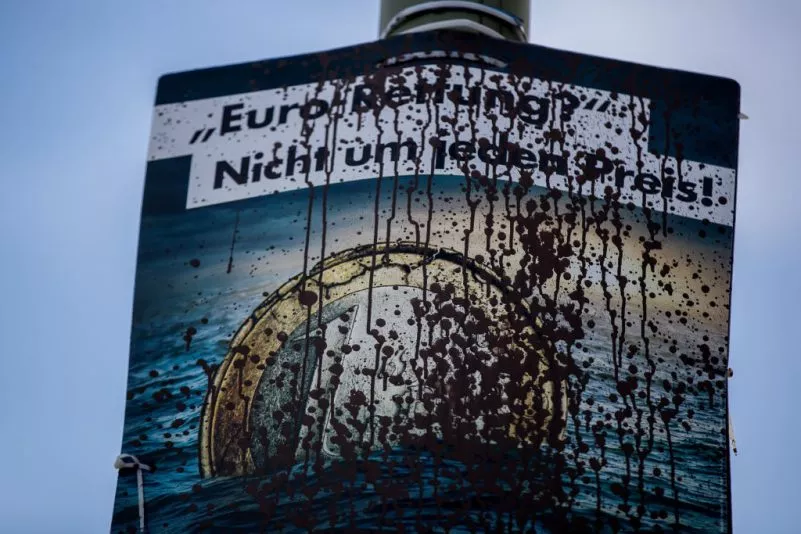 „Euro-Rettung?“
Nicht um jeden Preis!
1